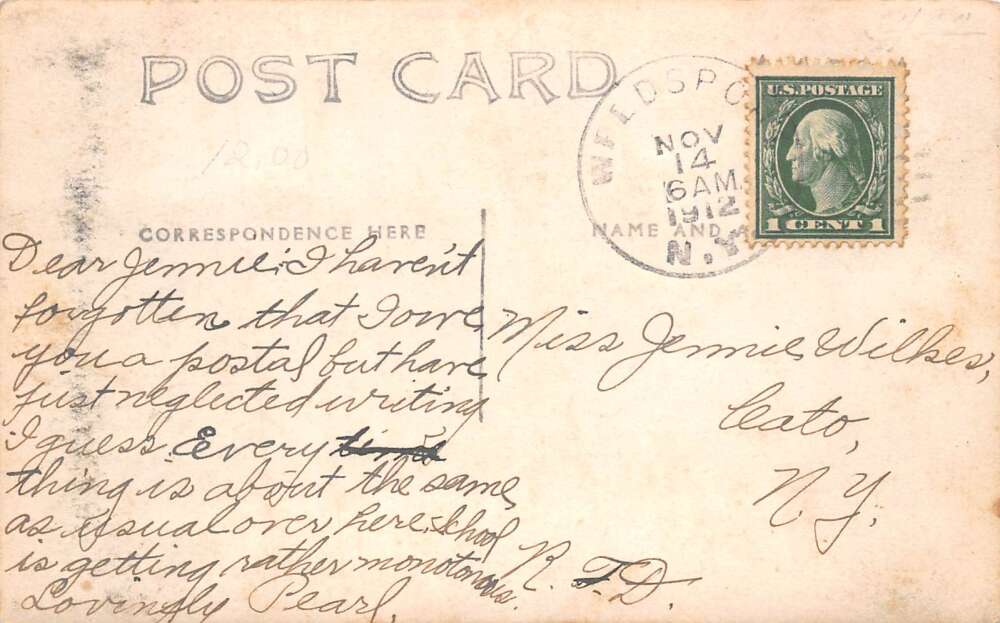 POST CARD
12.00
WEEDSPO
NOV
14
6 AM
1912
N.Y.
U.S. POSTAGE
1 CENT 1
CORRESPONDENCE HERE
NAME AND
Dear Jennie:- I haven't
forgotten that I owe
you a postal but have
just neglected writing
I guess. Every
thing is about the same
as usual over here. School
is getting rather monotonous.
Lovingly Pearl.
Miss Jennie Wilkes,
Cato,
N.Y.
R.F.D.